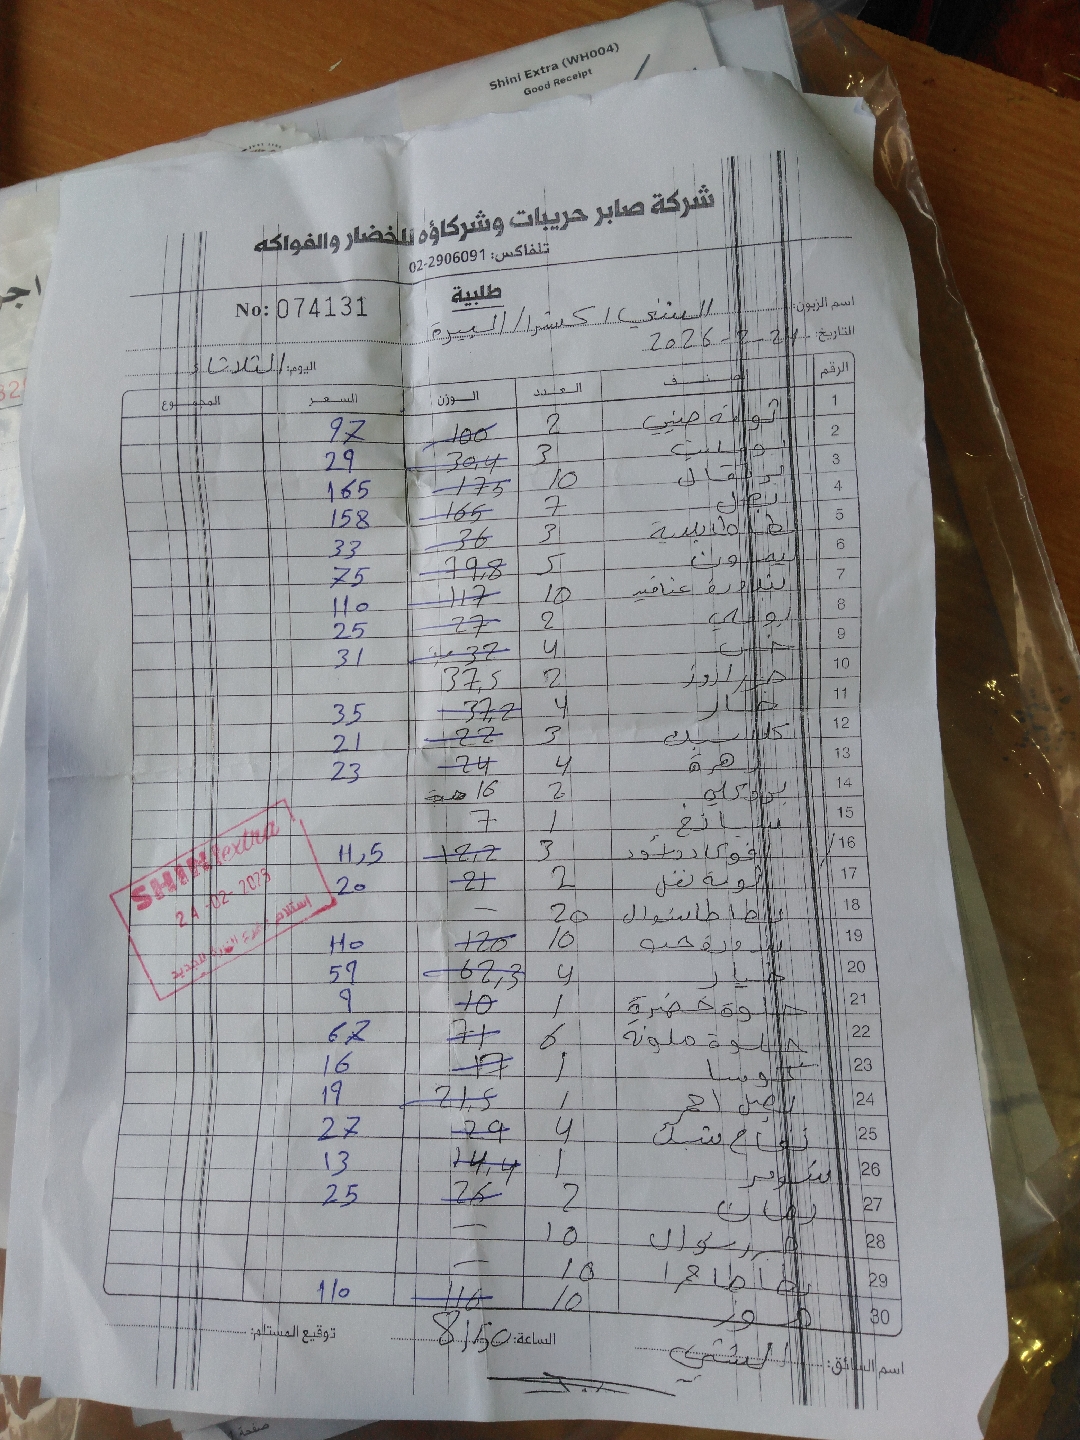 Shini Extra (WH004)
Good Receipt
شركة صابر حريبات وشركاؤه للخضار والفواكه
تلفاكس: 02-2906091
طلبية
No: 074131
اسم الزبون: الشني اكسترا / البيرة
التاريخ: 24-2-2026
اليوم: الثلاثاء
الرقم الصنف العدد الوزن السعر المجموع
1 ثومة صيني 2 100 97
2 3 30,4 29
3 برتقال 10 175 165
4 بصل 7 165 158
5 3 36 33
6 ليمون 5 79,8 75
7 بندورة عناقيد 10 117 110
8 بوملي 2 27 25
9 خس 4 32 31
10 2 37,5
11 4 37,2 35
12 3 22 21
13 زهرة 4 24 23
14 بروكلي 2 16
15 سبانخ 1 7
16 3 12,2 11,5
17 2 21 20
18 بطاطا شوال 20 —
19 بندورة حبه 10 120 110
20 خيار 4 62,3 59
21 حلوة خضرة 1 10 9
22 حلوة ملونة 6 71 67
23 كوسا 1 17 16
24 بصل احمر 1 21,5 19
25 تفاح 4 29 27
26 شومر 1 14,4 13
27 رمان 2 26 25
28 شوال 10 —
29 بطاطا 10 —
30 موز 10 116 110
SHINI extra
24-02-2026
اسم السائق: الشني
الساعة: 8,50
توقيع المستلم: